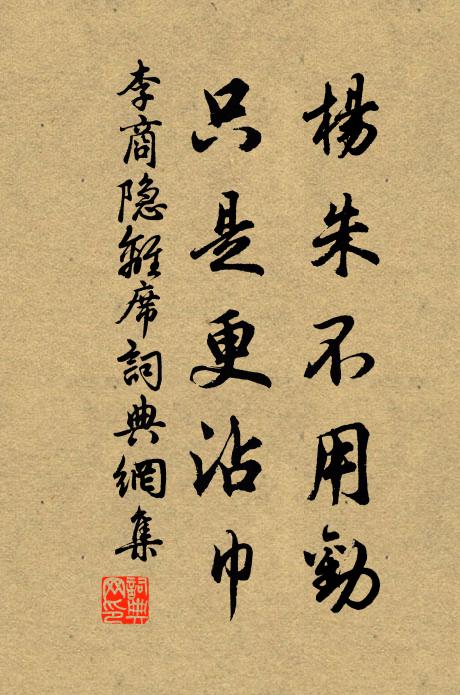 楊朱不用勸
只是更沾巾
李商隐離席詞典網集
詞典网印